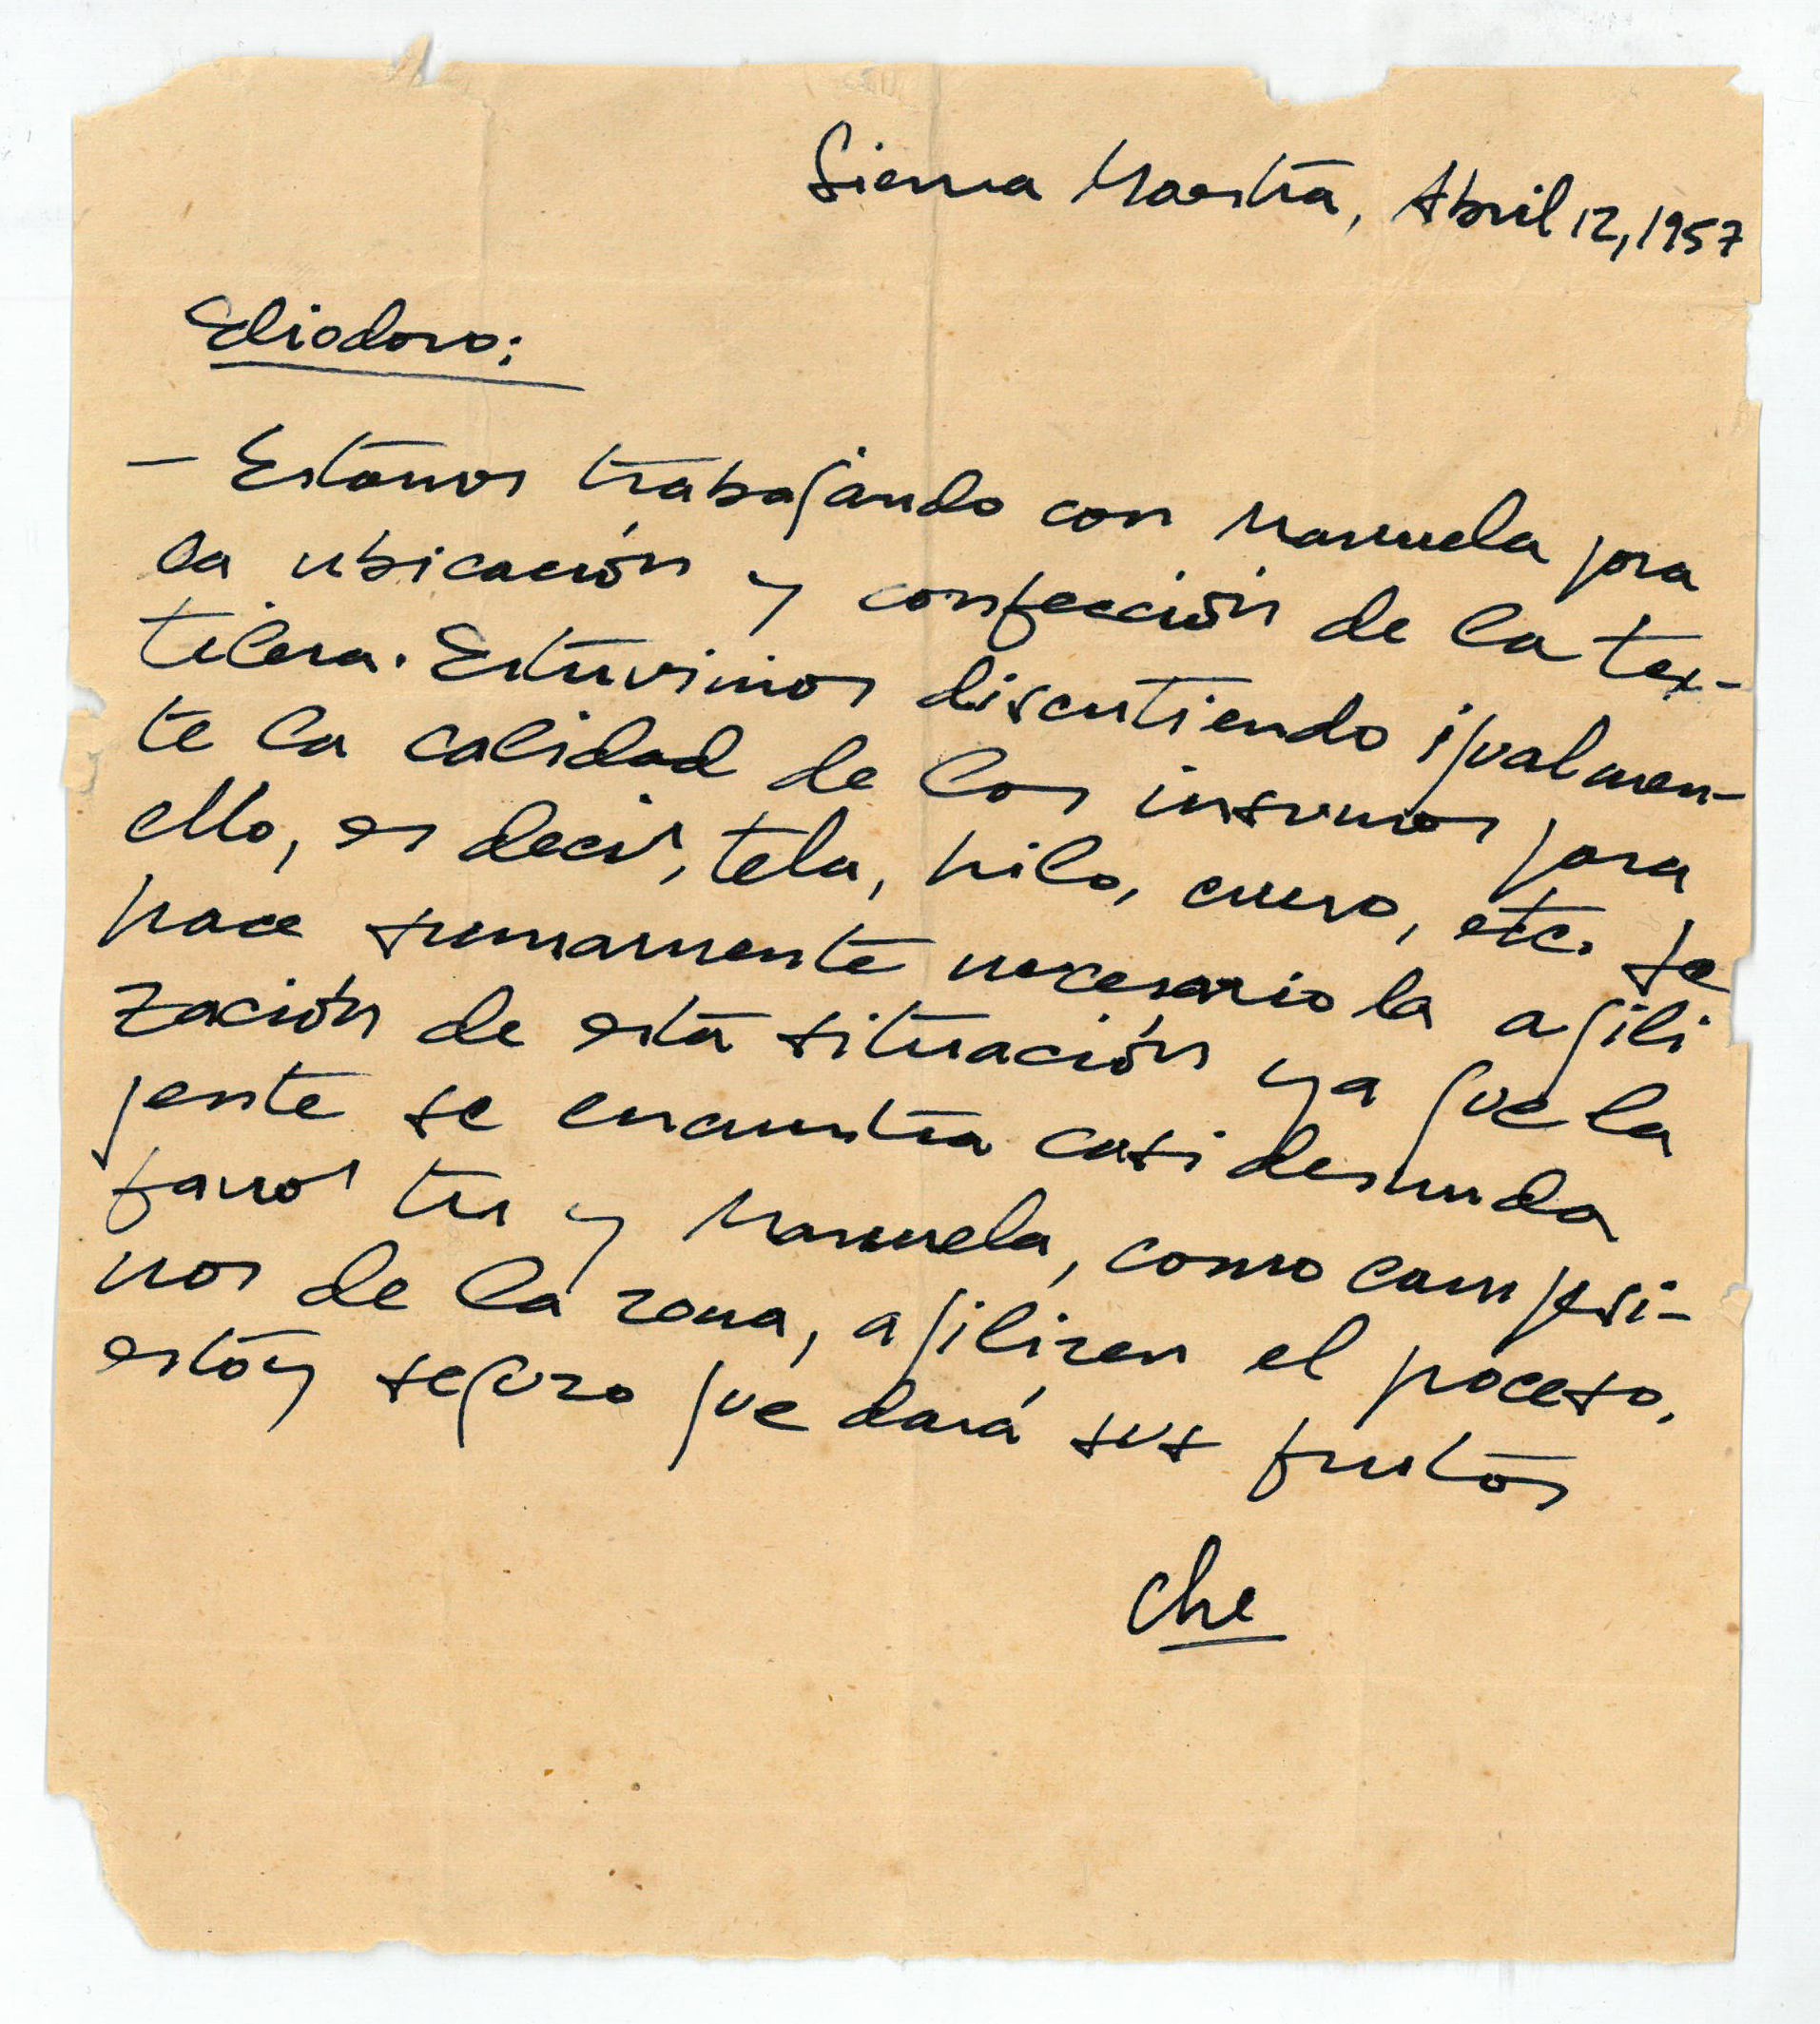 Sierra Maestra, Abril 12, 1957
Eliodoro:
- Estamos trabajando con Manuela para
la ubicación y confección de la tex-
tilera. Estuvimos discutiendo igualmen-
te la calidad de los insumos para
ello, es decir, tela, hilo, cuero, etc. Se
hace sumamente necesario la agili
zación de esta situación ya que la
gente se encuentra casi desnuda
favor tu y Manuela, como campesi-
nos de la zona, agilizen el proceso,
estoy seguro que dará sus frutos
Che